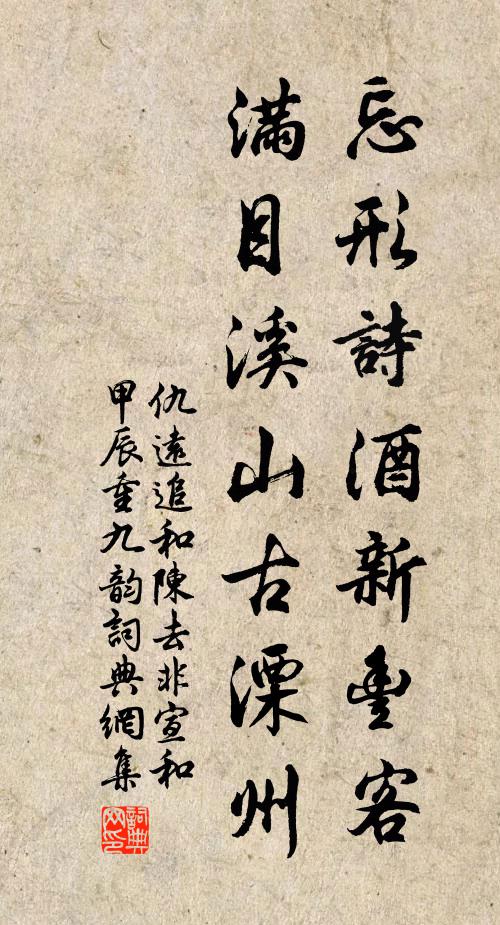 忘形詩酒新豊客
滿目溪山古溧州
仇遠追和陳去非宣和
甲辰重九韵詞典網集
詞典
网印